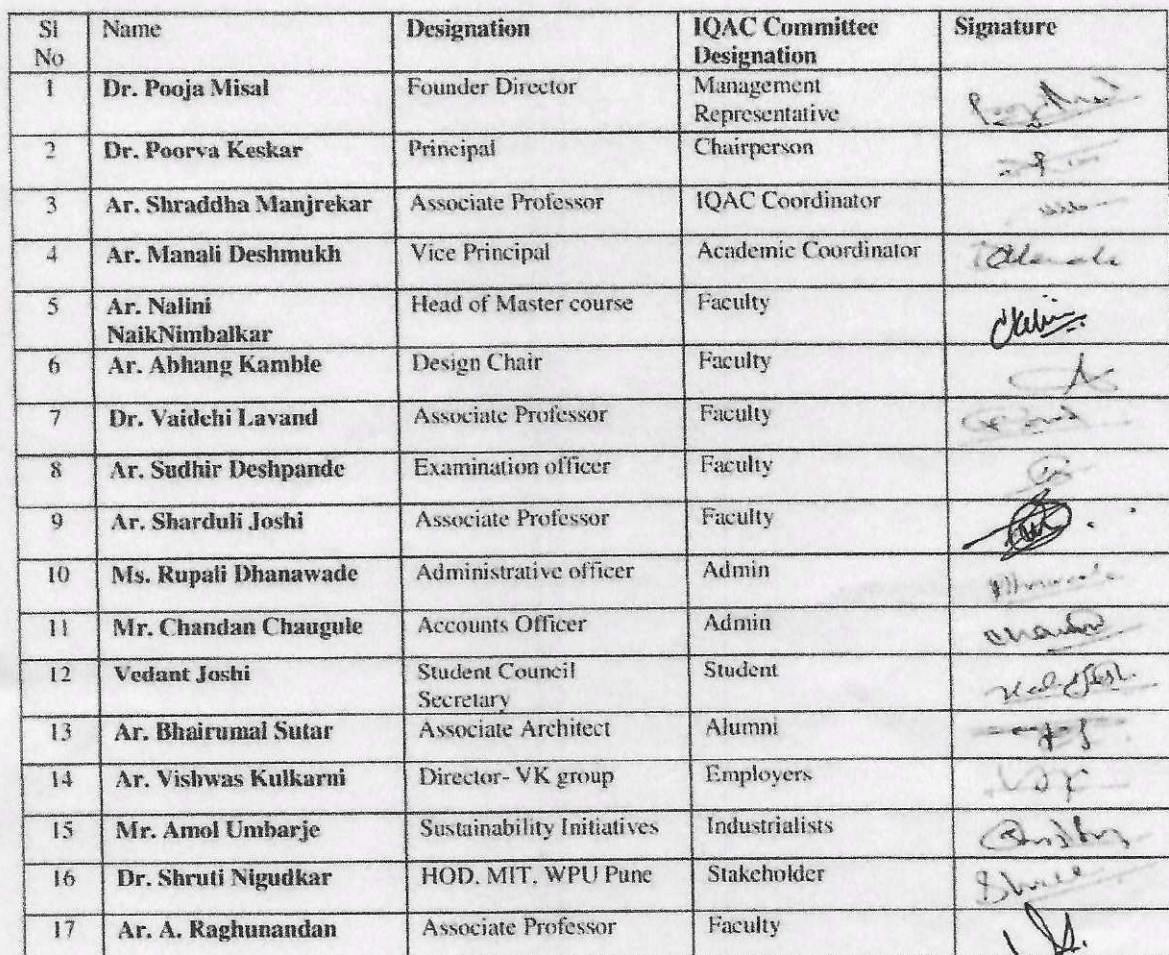 Sl No Name Designation IQAC Committee Designation Signature
1 Dr. Pooja Misal Founder Director Management Representative
2 Dr. Poorva Keskar Principal Chairperson
3 Ar. Shraddha Manjrekar Associate Professor IQAC Coordinator
4 Ar. Manali Deshmukh Vice Principal Academic Coordinator
5 Ar. Nalini NaikNimbalkar Head of Master course Faculty
6 Ar. Abhang Kamble Design Chair Faculty
7 Dr. Vaidehi Lavand Associate Professor Faculty
8 Ar. Sudhir Deshpande Examination officer Faculty
9 Ar. Sharduli Joshi Associate Professor Faculty
10 Ms. Rupali Dhanawade Administrative officer Admin
11 Mr. Chandan Chaugule Accounts Officer Admin
12 Vedant Joshi Student Council Secretary Student
13 Ar. Bhairumal Sutar Associate Architect Alumni
14 Ar. Vishwas Kulkarni Director- VK group Employers
15 Mr. Amol Umbarje Sustainability Initiatives Industrialists
16 Dr. Shruti Nigudkar HOD, MIT, WPU Pune Stakeholder
17 Ar. A. Raghunandan Associate Professor Faculty